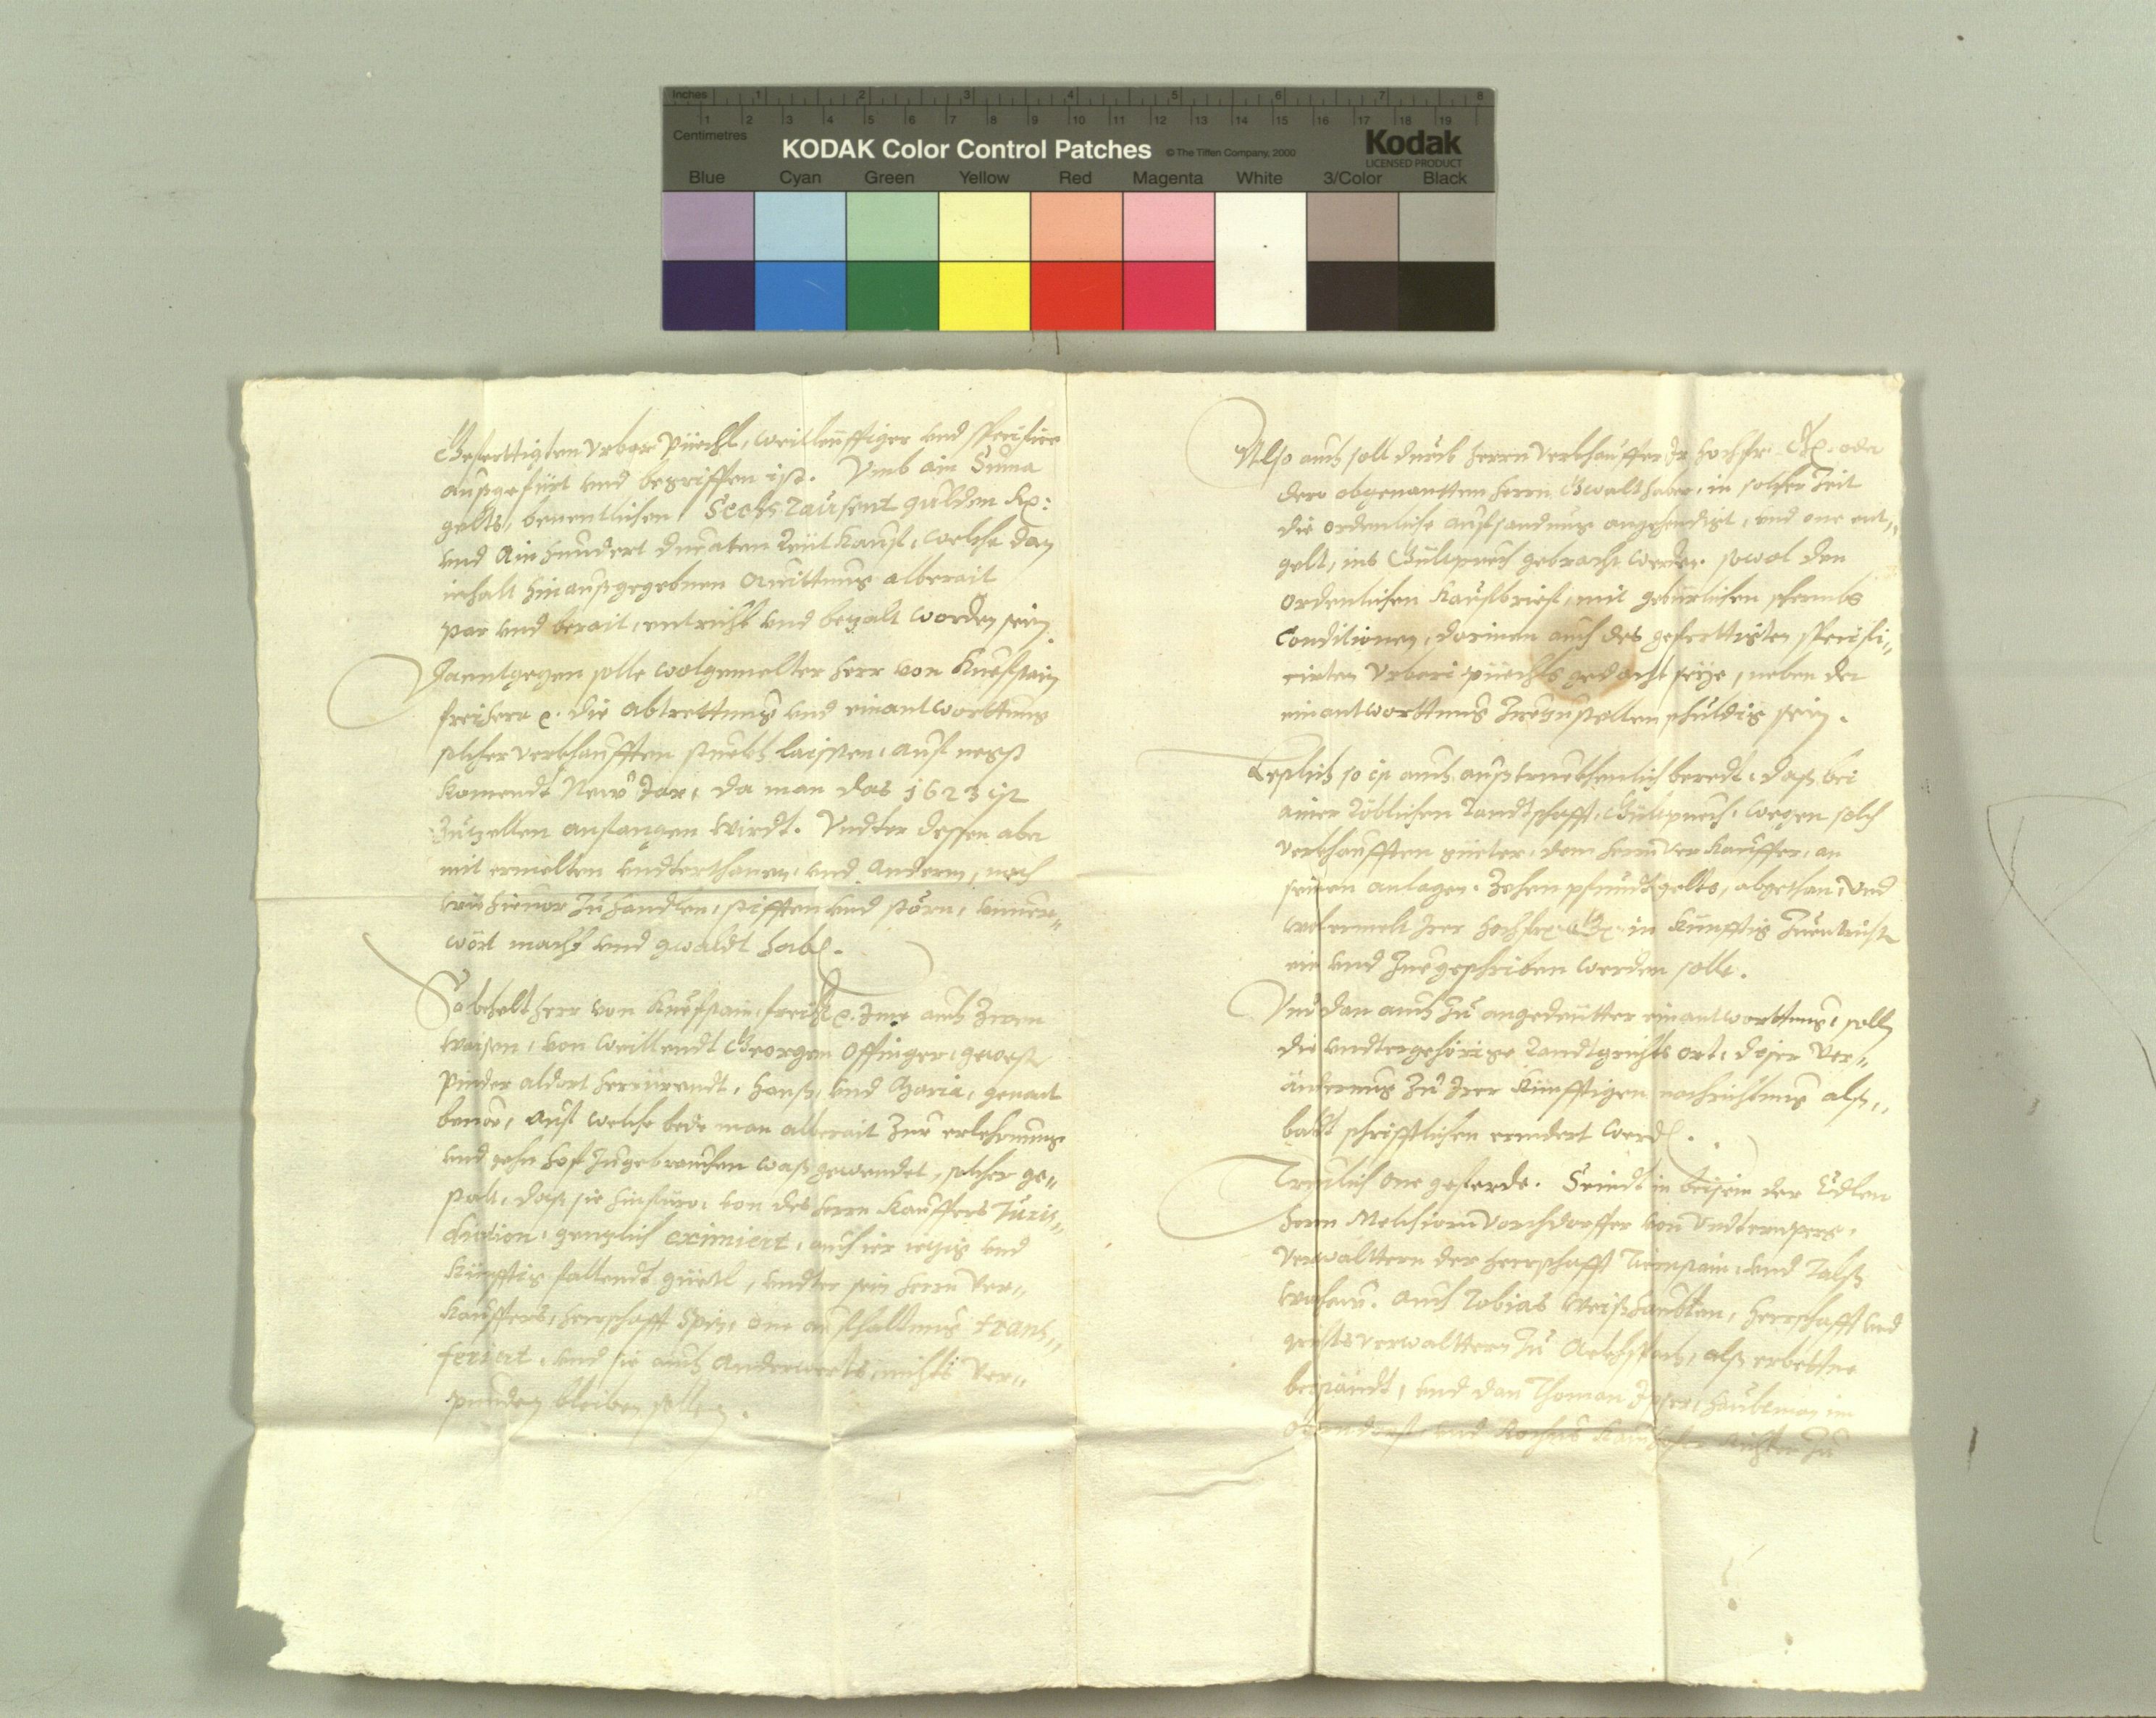 Inches 1 2 3 4 5 6 7 8
1 2 3 4 5 6 7 8 9 10 11 12 13 14 15 16 17 18 19
Centimetres
KODAK Color Control Patches © The Tiffen Company, 2000 Kodak
LICENSED PRODUCT
Blue Cyan Green Yellow Red Magenta White 3/Color Black
Geferttigten Urbar püechl, weitleüffiger und specifice
außgefürt und begriffen ist. Vmb ain Suma
gelts, benentlichen Sechs Tausent gulden Rx:
und Ain hundert ducaten Leütkauf, welche dan
inhalt hinaußgegebnen Quittung alberait
par und berait, entricht und bezalt worden sein.
Danntgegen solle wolgemelter Herr von Kueffstain
freiherr die abtrettung und einantworttung
solcher verkhaufften stuckh laissten, auf negst
Komendt New Jar, da man das 1623 ist
Zuzellen anfangen wirdt. Undter dessen aber
mit ermelten undterthanen, und Anderm, noch
wie hieuor zu handlen, stifften und störn,
wört macht und gwaldt hab.
So behelt herr von Kueffstain, freih Ime auch Zwen
Waisen, von weillendt Georgen Offinger, gewest
Pinder aldort herrürendt, Hanß, und Maria, genant
beuor, Auf welche bede man alberait Zur erlehrnung
und hof Zugebrauchen waß gewendet, solcher ge„
stalt, daß sie hinfüro, von des herrn Kauffers Juris„
diction, genzlich eximiert, auch ier iezig und
künfftig fallendt güetl, undter sein herrn Ver„
Kauffers, herrschafft Spiz, one aufhaltung trans„
feriert, und sie auch Anderwerts, nichts Ver„
punden bleiben sollen.
Also auch soll durch herrn verkhauffer Ir hochfr. Gn. oder
dero obgenantten herrn Gwalthaber, in solcher Zeit
die ordenliche aufsandung angehendigt, und one ent„
gelt, ins Gültpuech gebracht werden. sowol den
ordenlichen Kaufbrief, mit gebürlichen schermbs
Conditionen, darinen auch des geferttigten specifi„
cierten Urbari püechls gedacht seye, neben der
einantworttung Zuezustellen schuldig sein.
Leztlich so ist auch außtruckhenlich beredt, daß bei
ainer Löblichen Landtschafft, Gültpuech, wegen solch
verkhaufften güeter, dem herrn verkauffer, an
seinen anlagen, Zehen pfundt gelts, abgethan, Und
wolermelt Irer hochfr. Gn. in künfftig Zuentricht
ein und Zuegeschriben werden solle.
Und dan auch Zu angedeutter einantworttung, solln
die undtergehörige Landtgrichts ort, diser Ver„
änderung Zu Irer künfftigen nachrichtung alß„
baldt schrifftlichen erindert werd.
Treulich one geferde. Seindt in beisein der Edlen
herrn Melchiorn Vorchdorffer von Undternperg,
Verwalttern der herrschafft Tiernstain, und Talß
Wachaw. Auch Tobias Weißhaubten, herrschafft und
grichts verwalttern Zu alß erbettne
beiständt, und dan Thoman im
und Zu